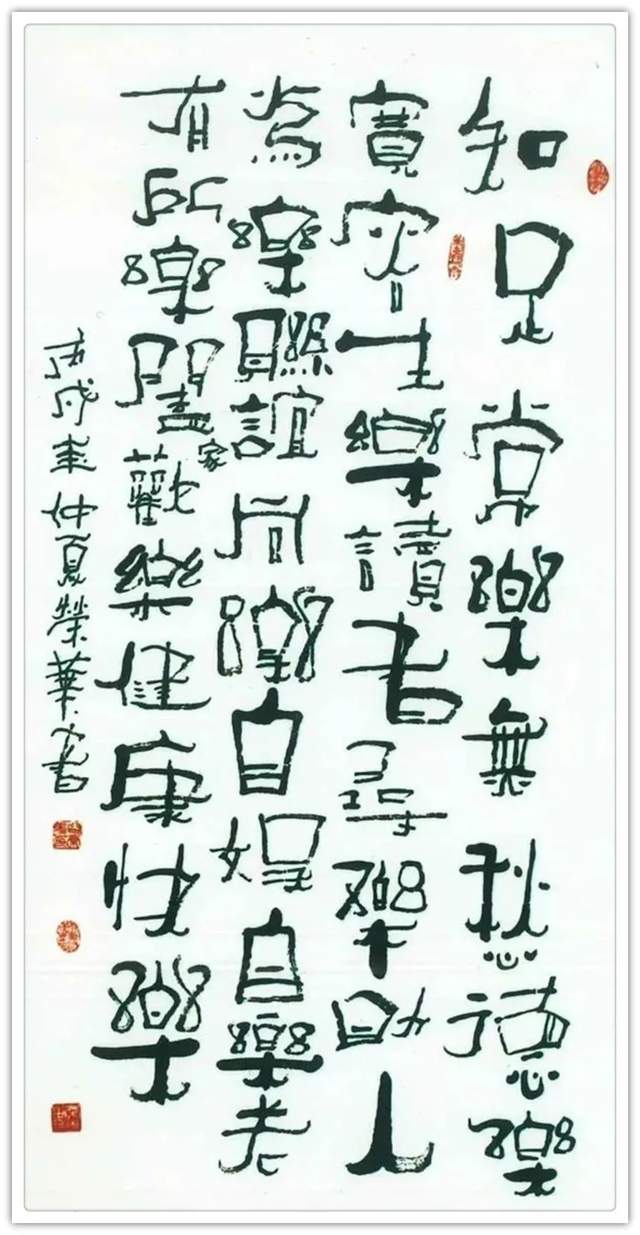 知足常樂無愁德樂
寬容生樂讀書尋樂助人
為樂聯誼同樂自娛自樂老
有所樂闔家歡樂健康快樂
丙戌年仲夏榮華書